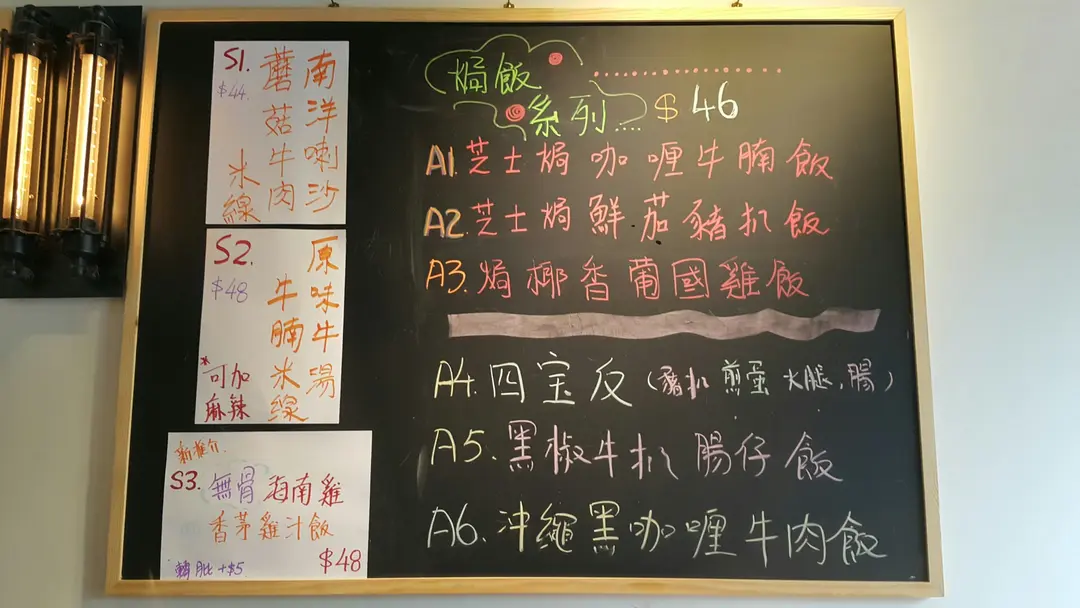 S1.
$44.
南洋喇沙
蘑菇牛肉
米線
S2.
$48
原味牛湯
牛腩米線
*可加
麻辣
新推介.
S3. 無骨海南雞
香茅雞汁飯
$48
轉肶 +$5
焗飯
系列.... $46
A1. 芝士焗咖喱牛腩飯
A2. 芝士焗鮮茄豬扒飯
A3. 焗椰香葡國雞飯
A4. 四宝反 (豬扒 煎蛋 火腿, 腸)
A5. 黑椒牛扒腸仔飯
A6. 沖繩黑咖喱牛肉飯